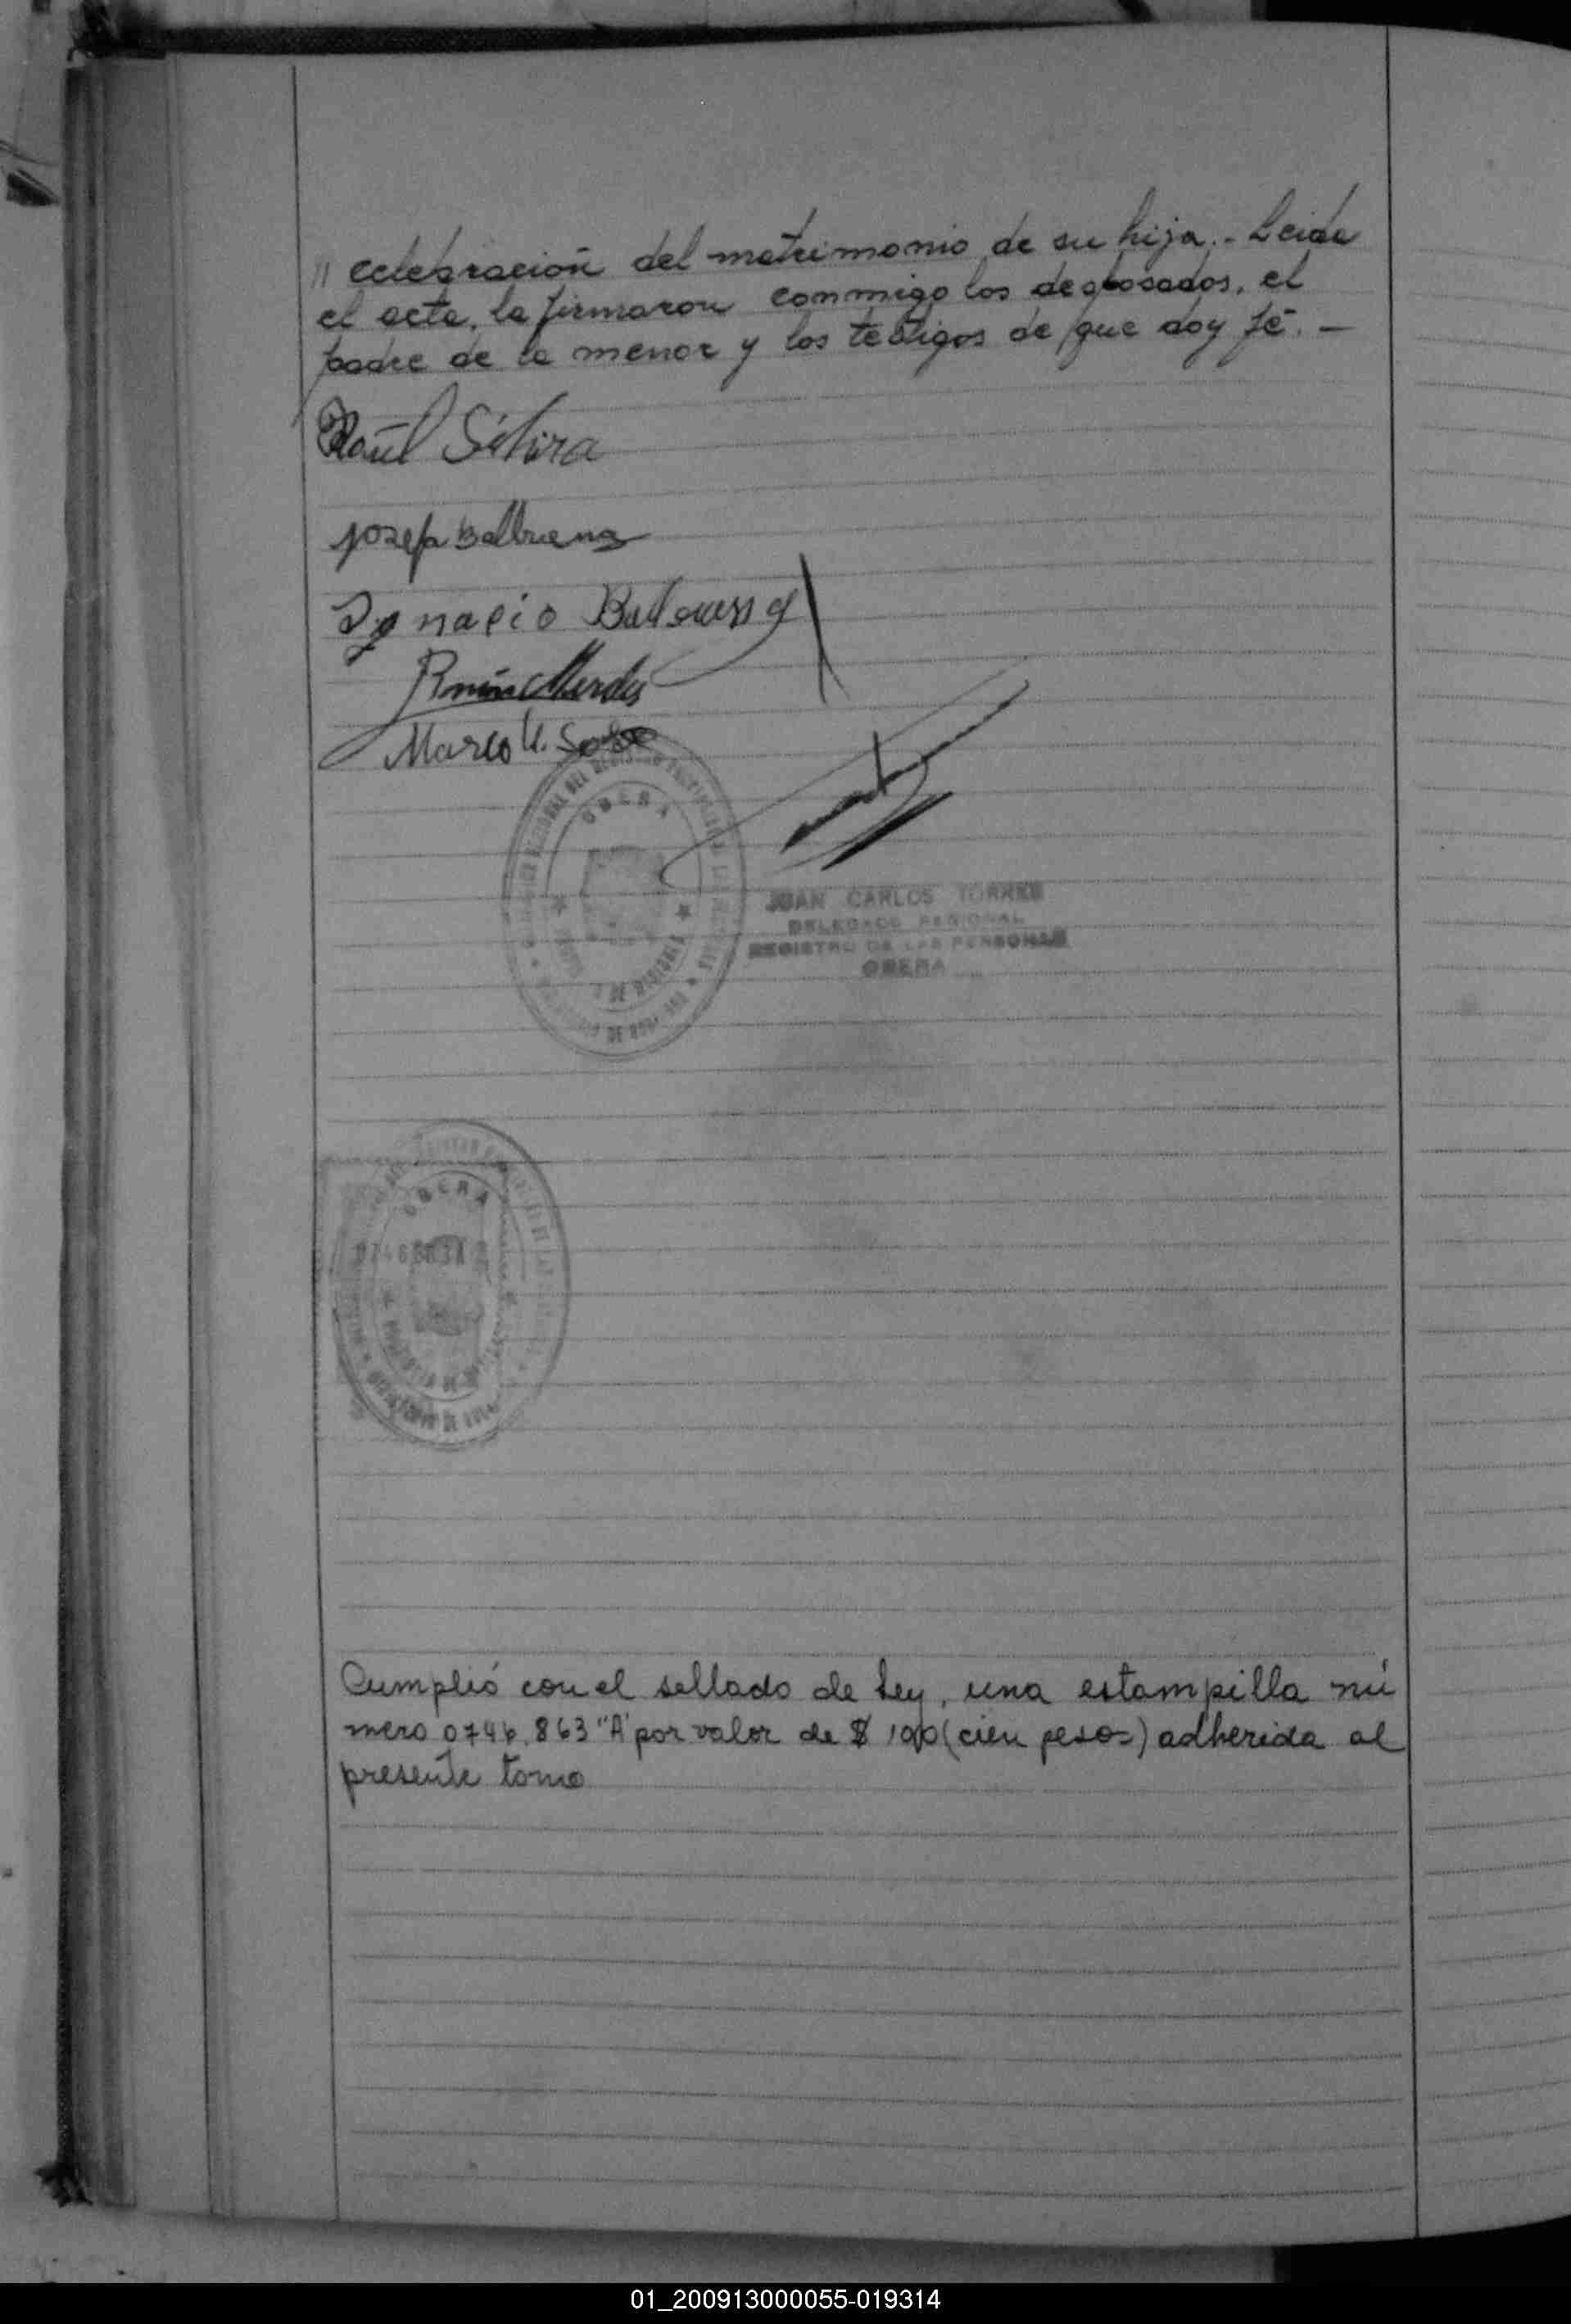 // celebración del matrimonio de su hija.- Leida
el acta, la firmaron conmigo los desposados, el
padre de la menor y los testigos de que doy fé. -
Raúl
Josefa
Ygnacio
Marco
OBERA
JUAN CARLOS TORRES
DELEGADO REGIONAL
REGISTRO DE LAS PERSONAS
OBERA
OBERA
PROVINCIA DE
Cumplió con el sellado de Ley, una estampilla nú
mero 0746.863 "A" por valor de $ 100 (cien pesos) adherida al
presente tomo
01_200913000055-019314